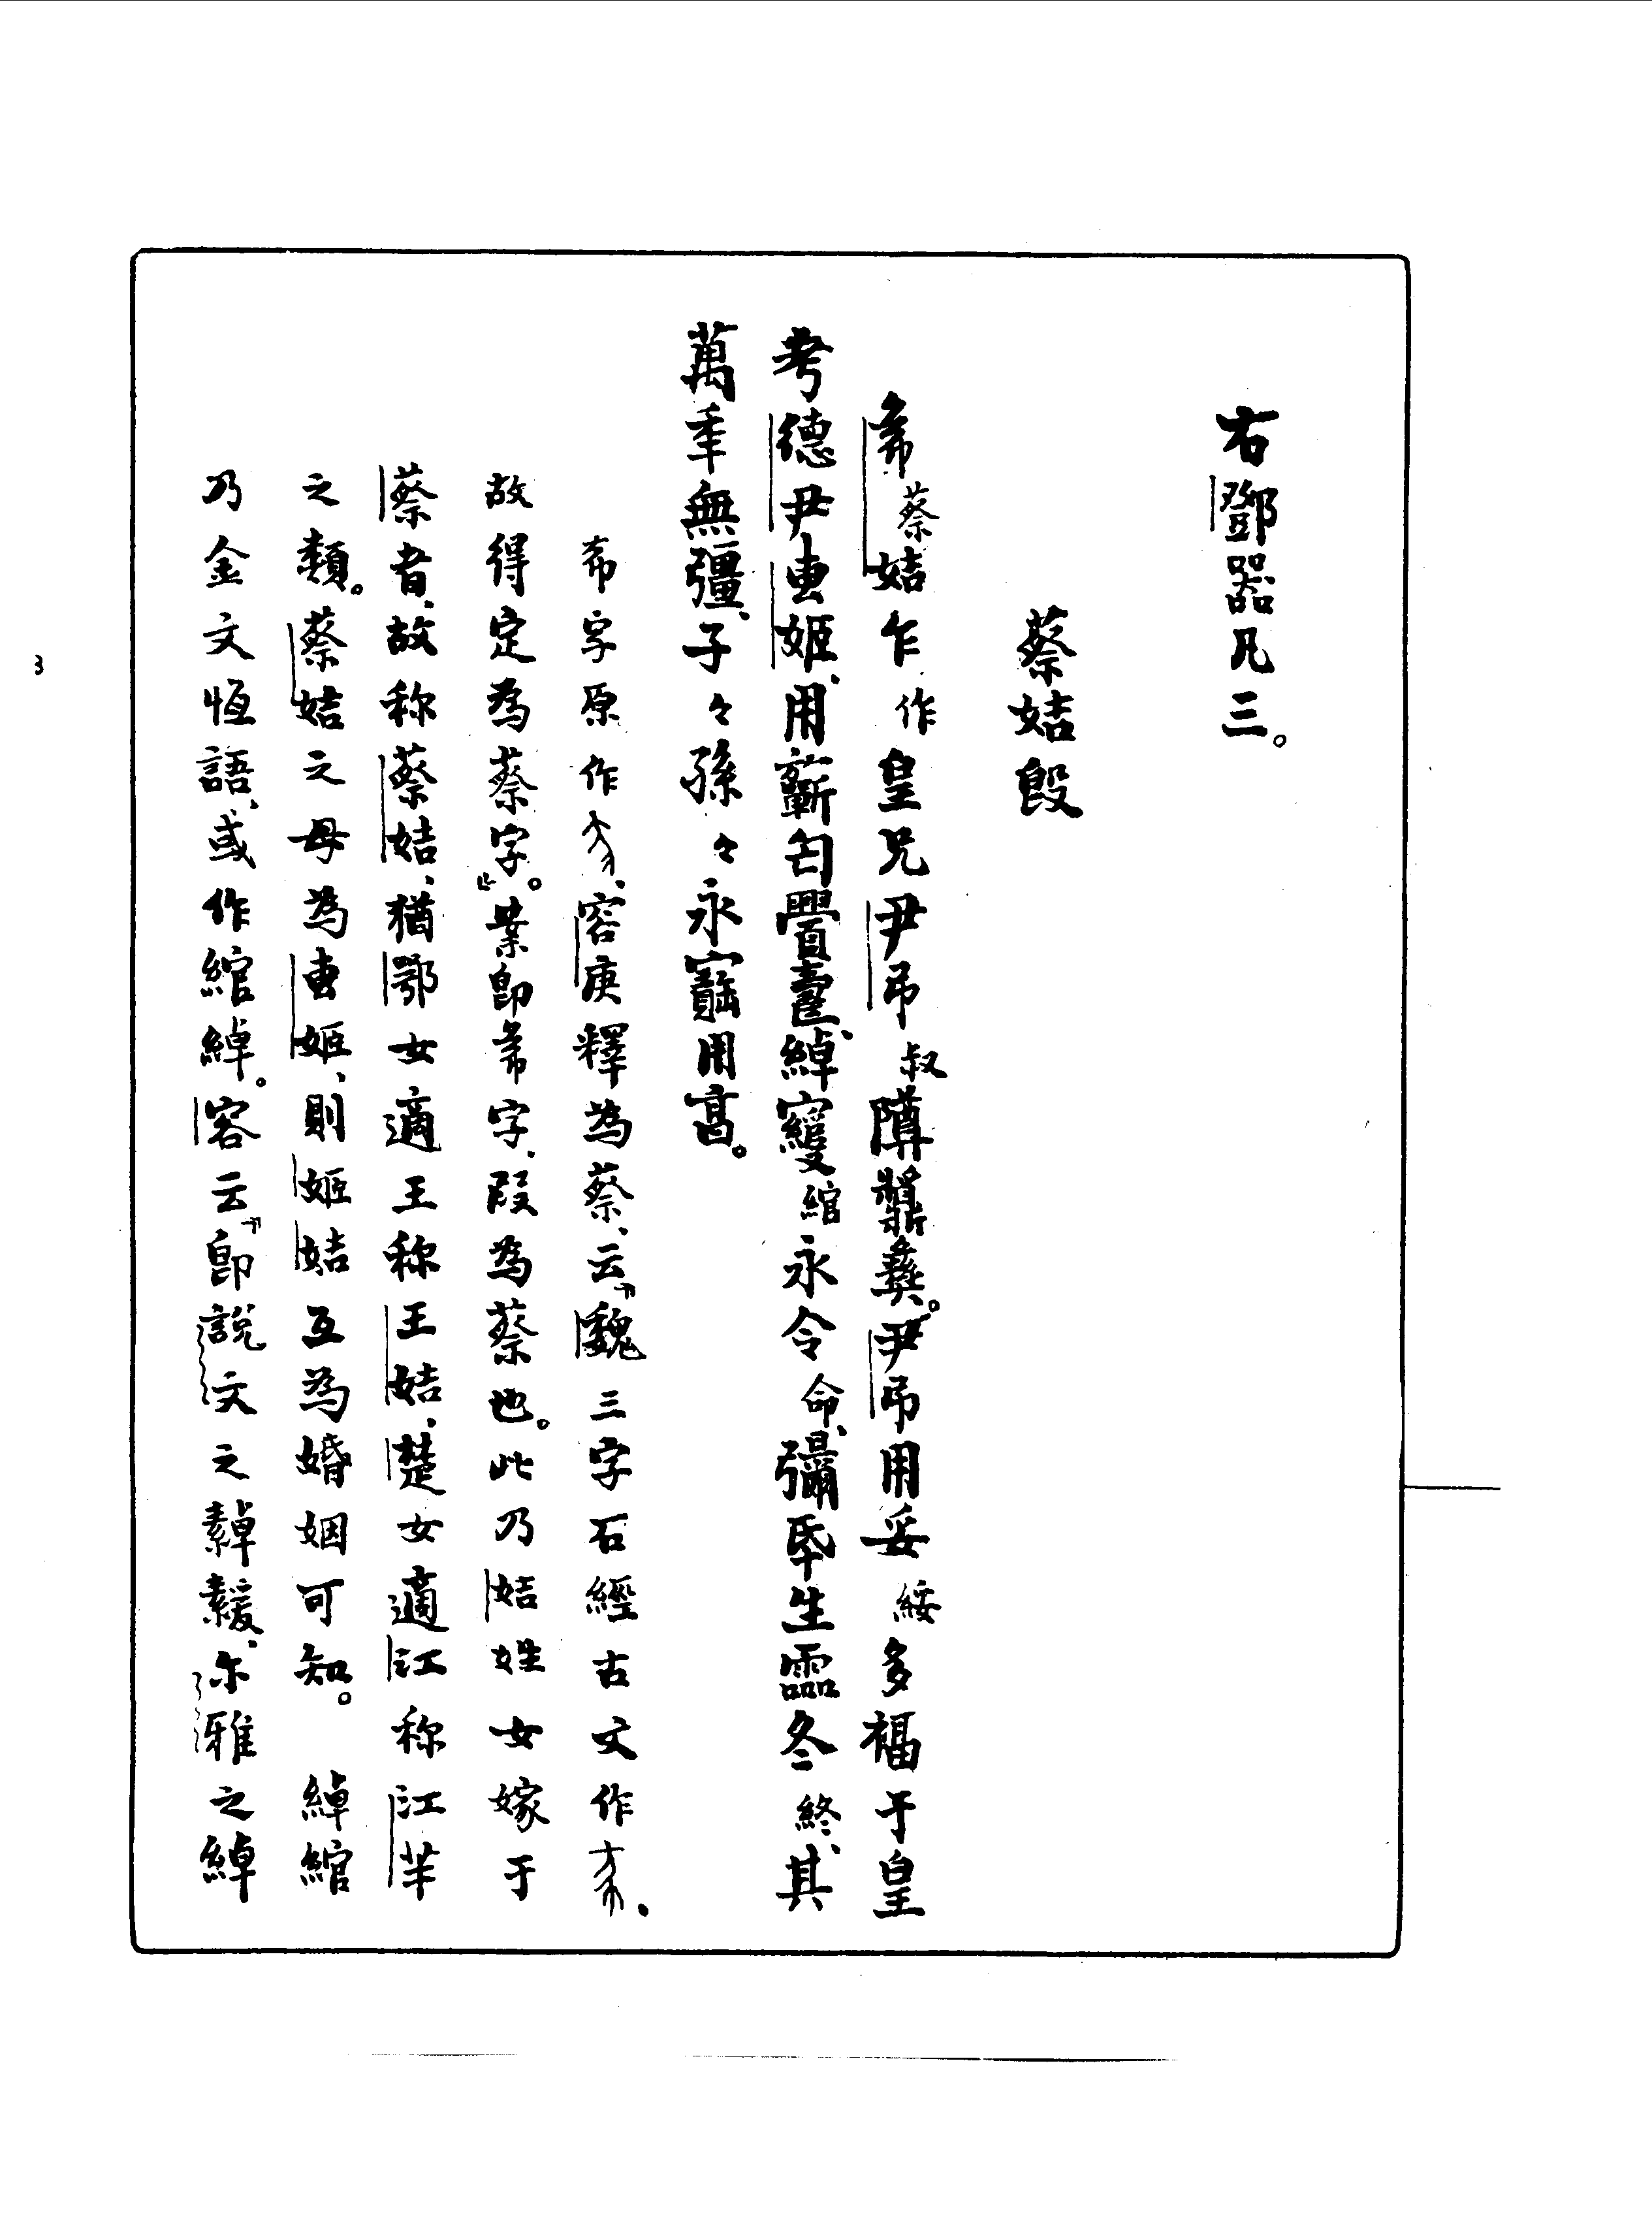 右鄧器凡三。
蔡姞𣪘
㣇蔡姞乍作皇兄尹弔叔䵼彝。尹弔用妥綏多福于皇
考德尹叀姬、用𣄨匄眉壽、綽綰永令命、彌氒生霝冬終、其
萬年無彊、子々孫々永寶用亯。
㣇字原作、容庚釋為蔡、云『魏三字石經古文作、
故得定為蔡字。』案即㣇字、叚為蔡也。此乃姞姓女嫁于
蔡者、故称蔡姞、猶鄂女適王称王姞、楚女適江称江羋
之類。蔡姞之母為叀姬、則姬姞互為婚姻可知。 綽綰
乃金文恆語、或作綰綽。容云『即說文之繛緩、尔雅之綽